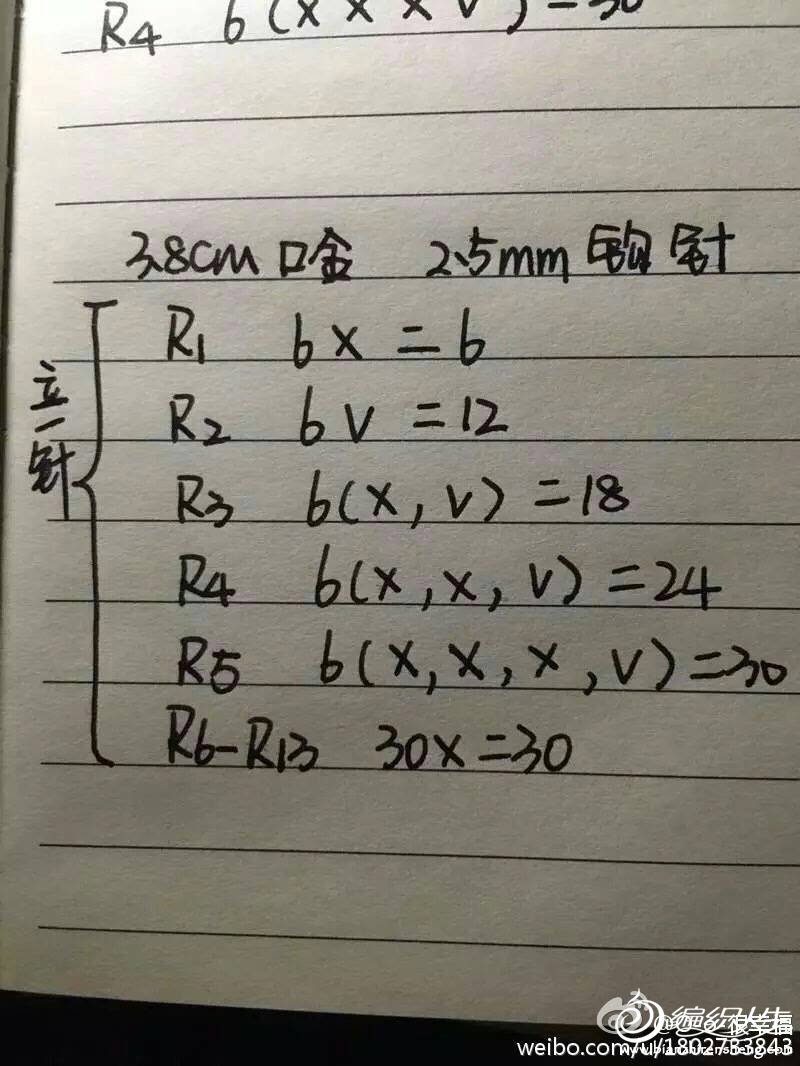 R4 6(x x x v)=30
3.8cm 口金 2.5mm 钩针
立一针
R1 6x=6
R2 6v=12
R3 6(x,v)=18
R4 6(x,x,v)=24
R5 6(x,x,x,v)=30
R6-R13 30x=30
编织人生
很幸福
weibo.com/u/1802783843
www.bianzhirensheng.com